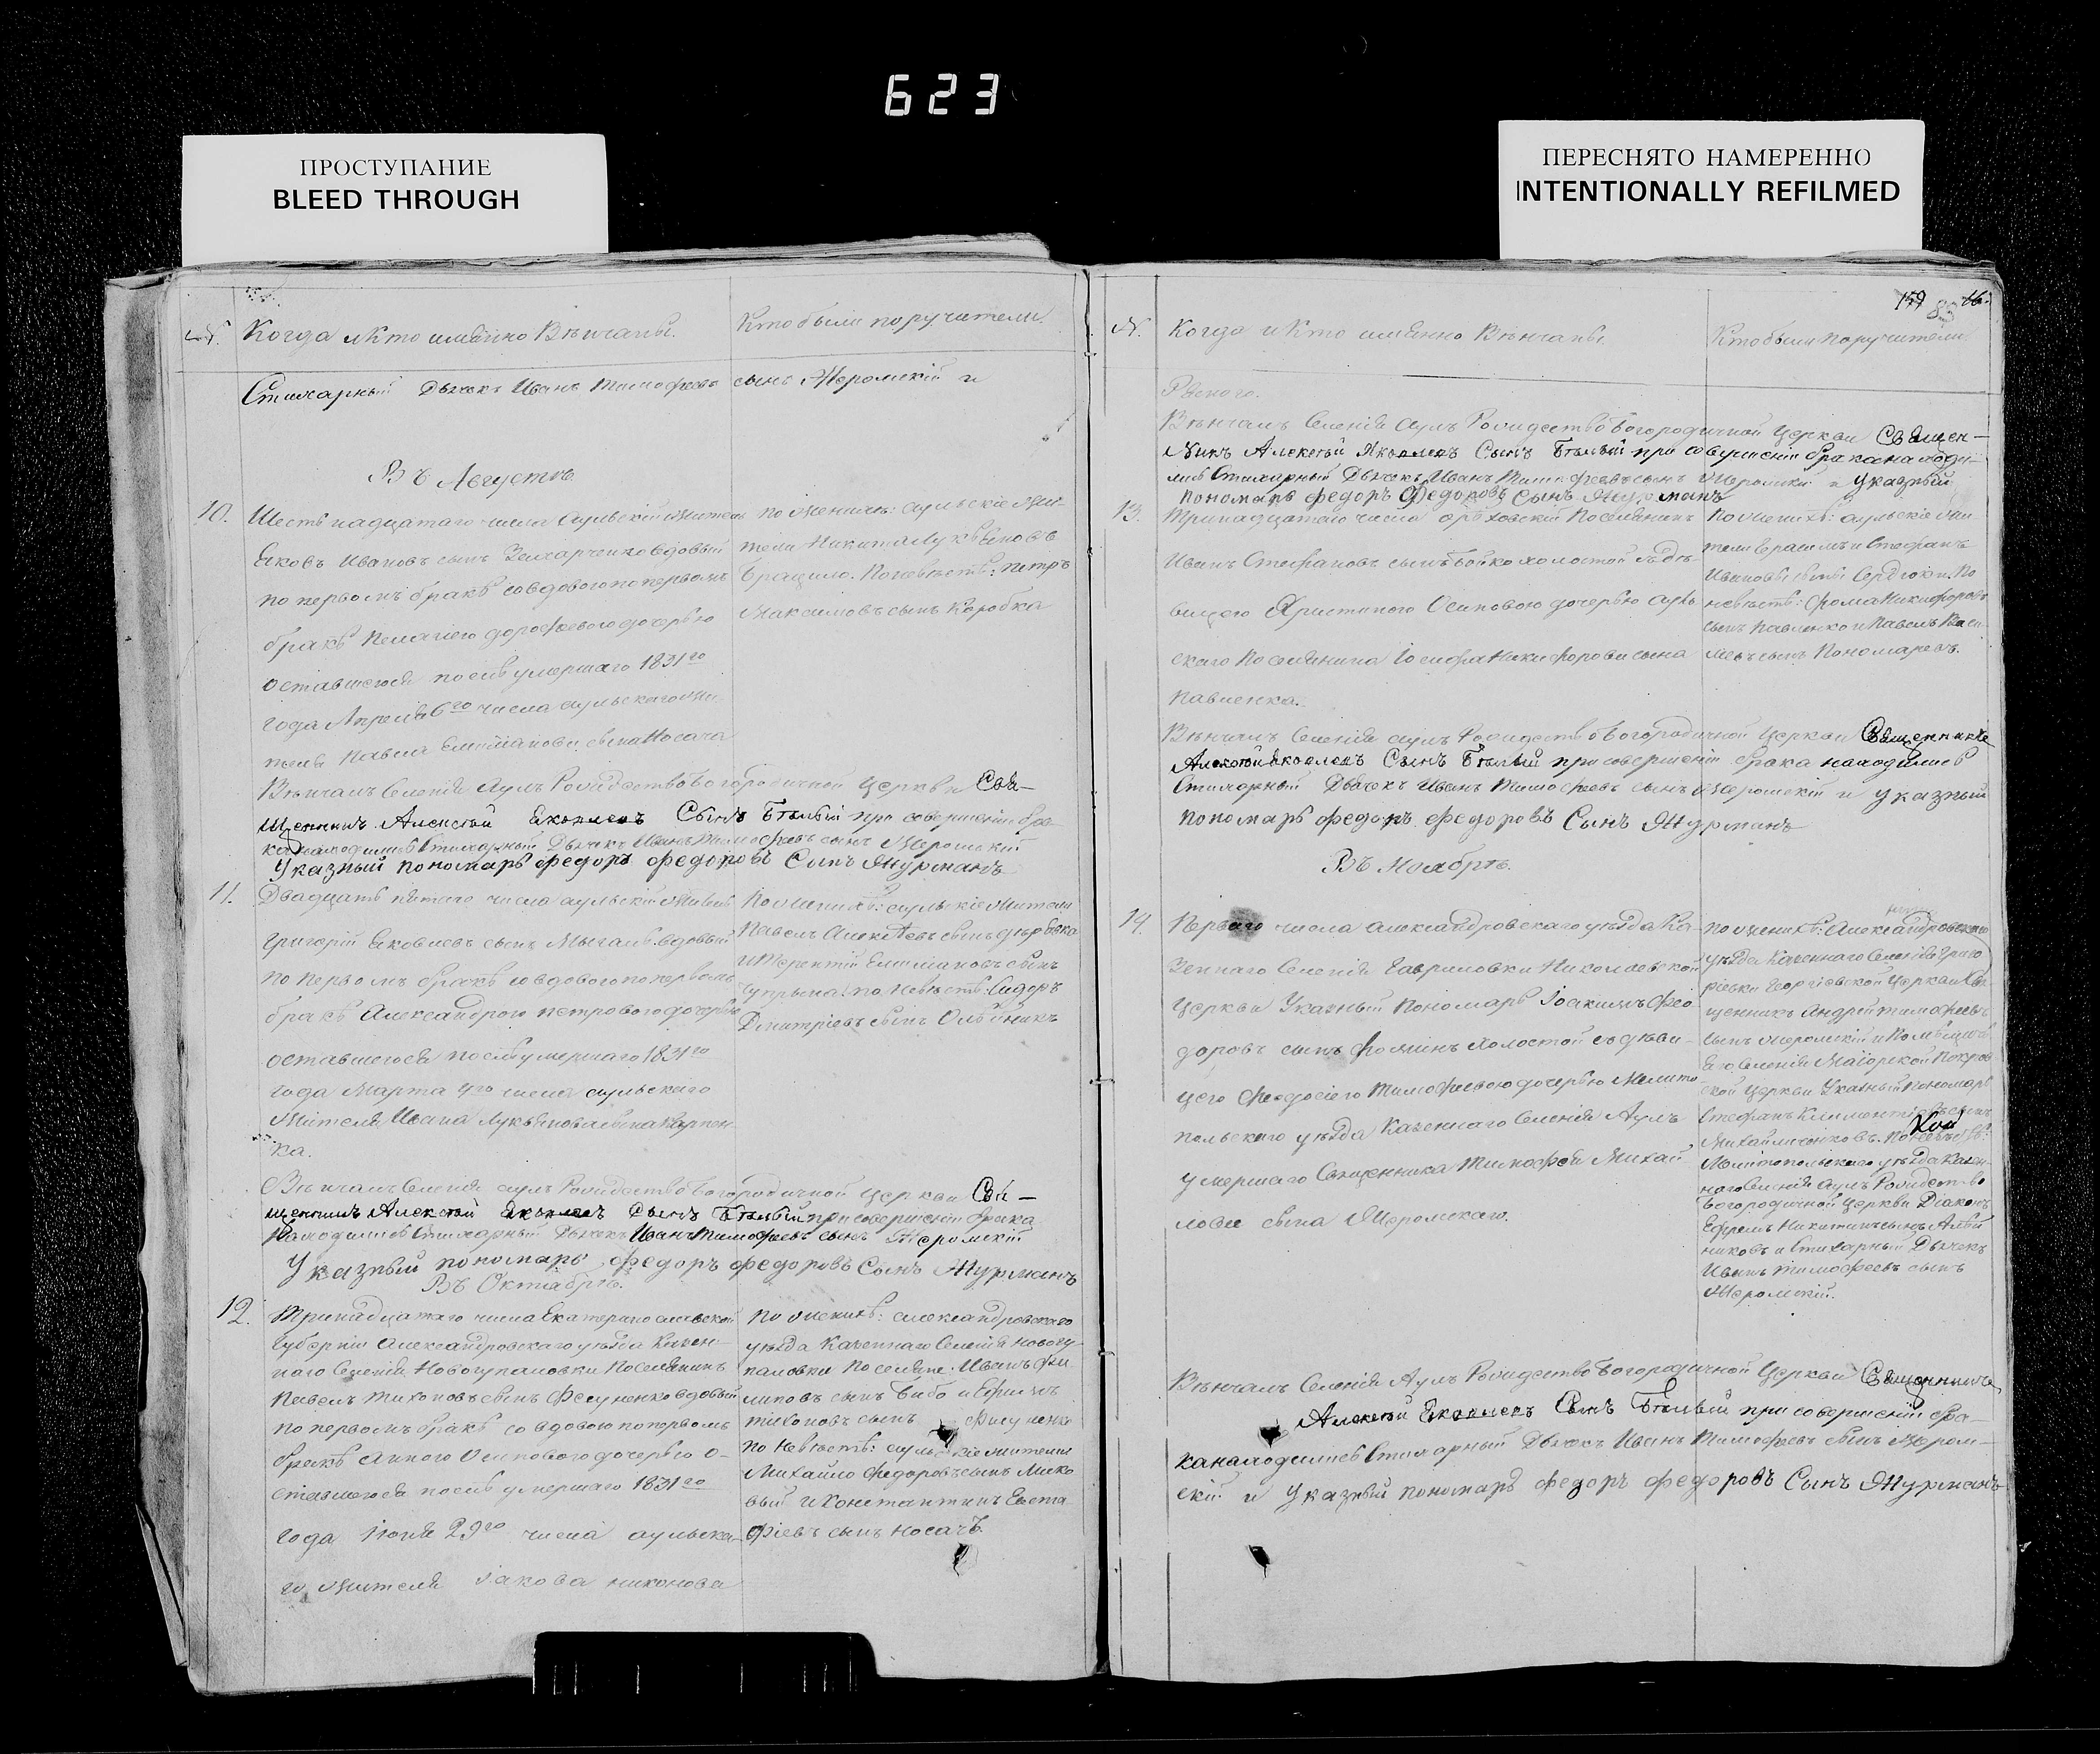 623
ПРОСТУПАНИЕ
BLEED THROUGH
ПЕРЕСНЯТО НАМЕРЕННО
INTENTIONALLY REFILMED
№. Когда и Кто имянно Вѣнчаны. Кто были поручители.
Стихарный Дьячекъ Иванъ Тимофеевъ сынъ Жеромскій и
Въ Августѣ.
10. Шестьнадцатаго числа аульскій житель
Яковъ Ивановъ сынъ Захарченко вдовый
по первомъ бракѣ совдовою по первомъ
бракѣ Пелагіею дорофѣевою дочерью
оставшеюся послѣ умершаго 1831го
года Апреля 6го числа аульскаго жи-
теля Павла сына Носача
по женихѣ: аульскіе жи-
тели Никита Лукьяновъ
Брацило. По невѣстѣ: Петръ
Максимовъ сынъ Коробка
Вѣнчалъ Селенія Аулъ Рождество Богородичной Церкви Свя-
щенникъ Алексѣй Яковлевъ Сынъ Бѣлый при совершеніи бра-
ка находились Стихарный Дьячекъ Иванъ Тимофеевъ сынъ Жеромскій
Указный пономарь федоръ федоровъ Сынъ Журманъ
11. Двадцать пятаго числа аульскій житель
григорій Яковлевъ сынъ вдовый
по первомъ бракѣ совдовою по первомъ
бракѣ Александрою петровою дочерью
оставшеюся послѣ умершаго 1831го
года Марта 4го числа аульскаго
жителя Ивана Лукьянова сына Карпен-
ка.
По женихѣ: аульскіе жители
Павелъ Алексѣевъ сынъ
и Терентій сынъ
по невѣстѣ: Сидоръ
Дмитріевъ сынъ Олѣйникъ
Вѣнчалъ Селенія аулъ Рождество Богородичной Церкви Свя-
щенникъ Алексѣй Яковлевъ Сынъ Бѣлый при совершеніи брака
Находились Стихарный Дьячекъ Иванъ Тимофеевъ сынъ Жеромскій
Указный пономарь федоръ федоровъ Сынъ Журманъ
Въ Октябрѣ.
12. Тринадцатаго числа Екатеринославской
Губерніи Александровскаго уѣзда Казен-
наго Селенія Новогупаловки Поселянинъ
Павелъ Тихоновъ сынъ вдовый
по первомъ бракѣ со вдовою по первомъ
бракѣ Анною Осиповою дочерью о-
ставшеюся послѣ умершаго 1831го
года Іюля 29го числа аульска-
го жителя Іакова никонова
по женихѣ: александровскаго
уѣзда Казеннаго Селенія новогу-
паловки поселяне: Иванъ фи-
липовъ сынъ Бибо и Ефимъ
тихоновъ сынъ
по невѣстѣ: аульскіе жители
Михайло федоровъ сынъ
и Константинъ Евста-
фіевъ сынъ носачъ.
159 83 16.
№. Когда и Кто имянно Вѣнчаны Кто были поручители
Вѣнчалъ Селенія аулъ Рождество Богородичной Церкви Священ-
Никъ Алексѣй Яковлевъ Сынъ Бѣлый при совершеніи брака находи-
лись Стихарный Дьячекъ Иванъ Тимофеевъ сынъ Жеромскій и Указный
Пономарь федоръ Федоровъ Сынъ Журманъ
13. Тринадцатаго числа орѣховскій поселянинъ
Иванъ Стефановъ сынъ Бойко холостой съ дѣ-
вицею Христиною Осиповою дочерью ауль-
скаго Поселянина Іосифа Никифорова сына
Павленка.
По женихѣ: аульскіе жи-
тели Герасимъ и Стефанъ
Ивановы сыны Сердюки. По
невѣстѣ: фома Никифоровъ
сынъ Павленко и Павелъ Васи-
льевъ сынъ Пономаревъ.
Вѣнчалъ Селенія аулъ Рождество Богородичной Церкви Священникъ
Алексѣй Яковлевъ Сынъ Бѣлый при совершеніи брака находились
Стихарный Дьячекъ Иванъ Тимофеевъ сынъ Жеромскій и указный
пономарь федоръ федоровъ Сынъ Журманъ
Въ Ноябрѣ.
14. Перваго числа александровскаго уѣзда Ка-
зеннаго Селенія Гавриловки Николаевской
Церкви Указный пономарь Іоакимъ Фео-
доровъ сынъ фоминъ холостой съ дѣви-
цею Феодосіею Тимофеевою дочерью Мелито-
польскаго уѣзда Казеннаго Селенія Аулъ
умершаго Священника Тимофея Михай-
лова сына Жеромскаго.
по женихѣ: Александровскаго
уѣзда Казеннаго Селенія Григо-
рьевки Георгіевской Церкви Свя-
щенникъ Андрей тимофеевъ
сынъ Жеромскій и
Селенія Маіорской Покров-
ской Церкви Указный пономарь
Стефанъ Климентіевъ сынъ
Михайличенковъ. По невѣстѣ:
Мелитопольскаго уѣзда Казен-
наго Селенія аулъ Рождество
Богородичной Церкви Діаконъ
Ефремъ Никитинъ сынъ
и Стихарный Дьячекъ
Иванъ тимофеевъ сынъ
Жеромскій.
Вѣнчалъ Селенія Аулъ Рождество Богородичной Церкви Священникъ
Алексѣй Яковлевъ Сынъ Бѣлый при совершеніи бра-
ка находились Стихарный Дьячекъ Иванъ Тимофеевъ сынъ Жером-
скій и Указный пономарь федоръ федоровъ Сынъ Журманъ